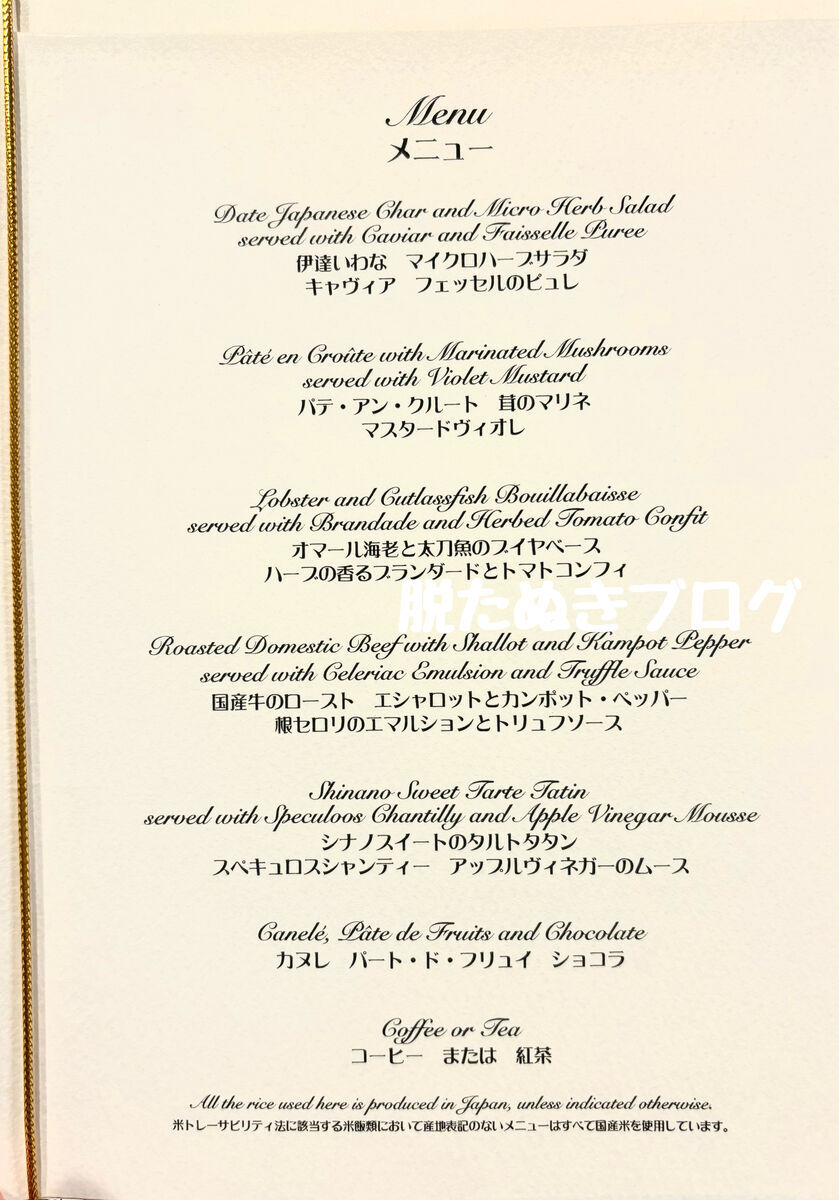 Menu
メニュー
Date Japanese Char and Micro Herb Salad
served with Caviar and Faisselle Puree
伊達いわな　マイクロハーブサラダ
キャヴィア　フェッセルのピュレ
Pâté en Croûte with Marinated Mushrooms
served with Violet Mustard
パテ・アン・クルート　茸のマリネ
マスタードヴィオレ
Lobster and Cutlassfish Bouillabaisse
served with Brandade and Herbed Tomato Confit
オマール海老と太刀魚のブイヤベース
ハーブの香るブランダードとトマトコンフィ
脱たぬきブログ
Roasted Domestic Beef with Shallot and Kampot Pepper
served with Celeriac Emulsion and Truffle Sauce
国産牛のロースト　エシャロットとカンポット・ペッパー
根セロリのエマルションとトリュフソース
Shinano Sweet Tarte Tatin
served with Speculoos Chantilly and Apple Vinegar Mousse
シナノスイートのタルトタタン
スペキュロスシャンティー　アップルヴィネガーのムース
Canelé, Pâte de Fruits and Chocolate
カヌレ　パート・ド・フリュイ　ショコラ
Coffee or Tea
コーヒー　または　紅茶
All the rice used here is produced in Japan, unless indicated otherwise.
米トレーサビリティ法に該当する米飯類において産地表記のないメニューはすべて国産米を使用しています。